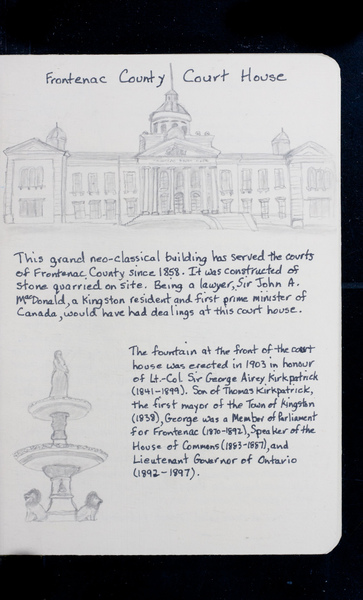 Frontenac County Court House
This grand neo-classical building has served the courts
of Frontenac County since 1858. It was constructed of
stone quarried on site. Being a lawyer, Sir John A.
MacDonald, a Kingston resident and first prime minister of
Canada, would have had dealings at this court house.
The fountain at the front of the court
house was erected in 1903 in honour
of Lt.-Col. Sir George Airey Kirkpatrick
(1841-1899). Son of Thomas Kirkpatrick,
the first mayor of the Town of Kingston
(1838), George was a Member of Parliament
for Frontenac (1870-1892), Speaker of the
House of Commons (1883-1887), and
Lieutenant Governor of Ontario
(1892-1897).